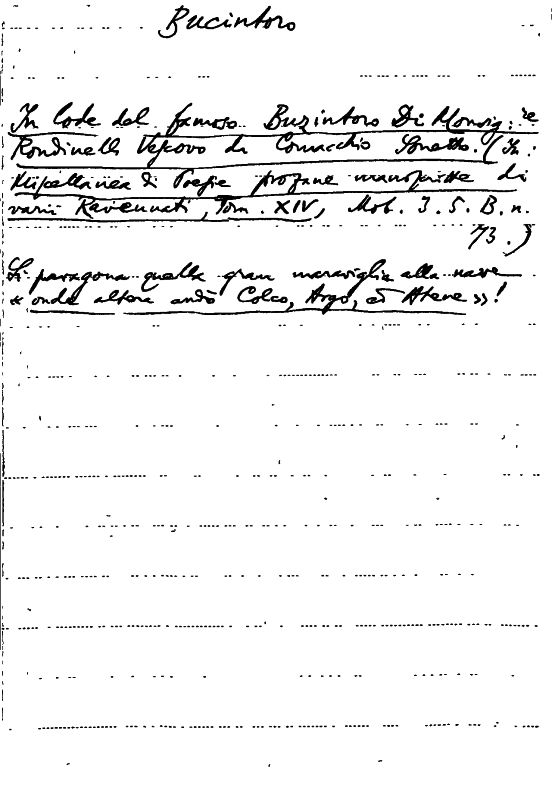 Bucintoro
In lode del famoso Buzintoro Di Monsig:re
Rondinelli Vescovo di Comacchio Sonetto. (In:
Miscellanea di Poesie profane manoscritte di
varii Ravennati, Tom. XIV, Mob. 3. 5. B. n.
73.)
Si paragona quella gran maraviglia alla nave
« onde altera andò Colco, Argo, ed Atene »!